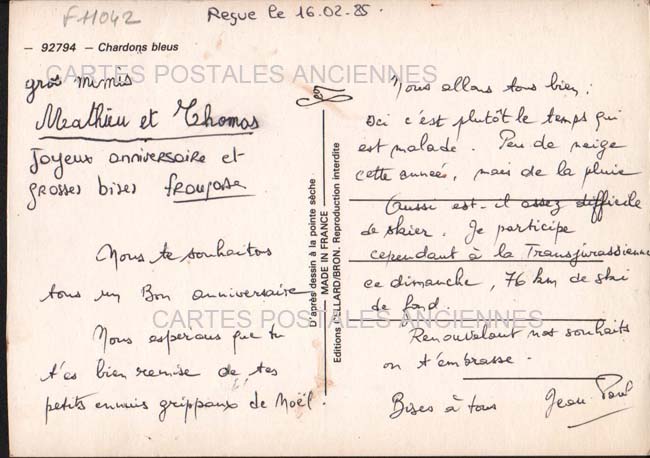 F11042
Reçue le 16.02.85.
– 92794 – Chardons bleus
CARTES POSTALES ANCIENNES
gros mimis
Mathieu et Thomas
Joyeux anniversaire et
grosses bises françoise
Nous te souhaitons
tous un Bon anniversaire
Nous esperons que tu
t'es bien remise de tes
petits ennuis grippaux de Noël.
D'après dessin à la pointe sèche
MADE IN FRANCE
Editions PELLARD/BRON. Reproduction interdite
Nous allons tous bien :
ici c'est plutôt le temps qui
est malade. Peu de neige
cette année, mais de la pluie
Aussi est-il assez difficile
de skier. Je participe
cependant à la Transjurassienne
ce dimanche, 76 km de ski
de fond.
CARTES POSTALES ANCIENNES
Renouvelant nos souhaits
on t'embrasse.
Bises à tous Jean Paul